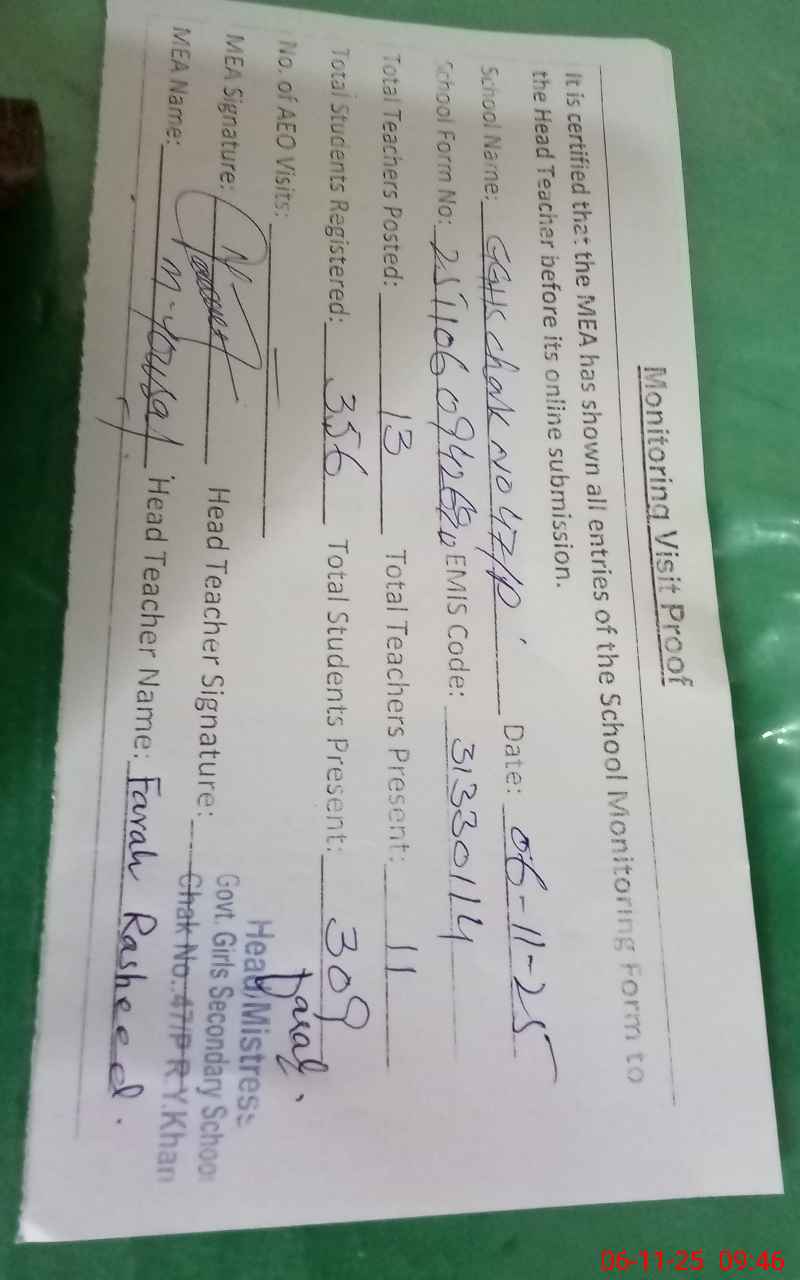 Monitoring Visit Proof
It is certified that the MEA has shown all entries of the School Monitoring Form to
the Head Teacher before its online submission.
School Name: GGHS chak NO 47/P Date: 06-11-25
School Form No: EMIS Code: 31330114
Total Teachers Posted: 13 Total Teachers Present: 11
Total Students Registered: 356 Total Students Present: 309
No. of AEO Visits: —
MEA Signature: Head Teacher Signature:
MEA Name: M-Yousaf Head Teacher Name: Farah Rasheed.
Head Mistress
Govt. Girls Secondary School
Chak No. 47/P R.Y.Khan
06-11-25 09:46